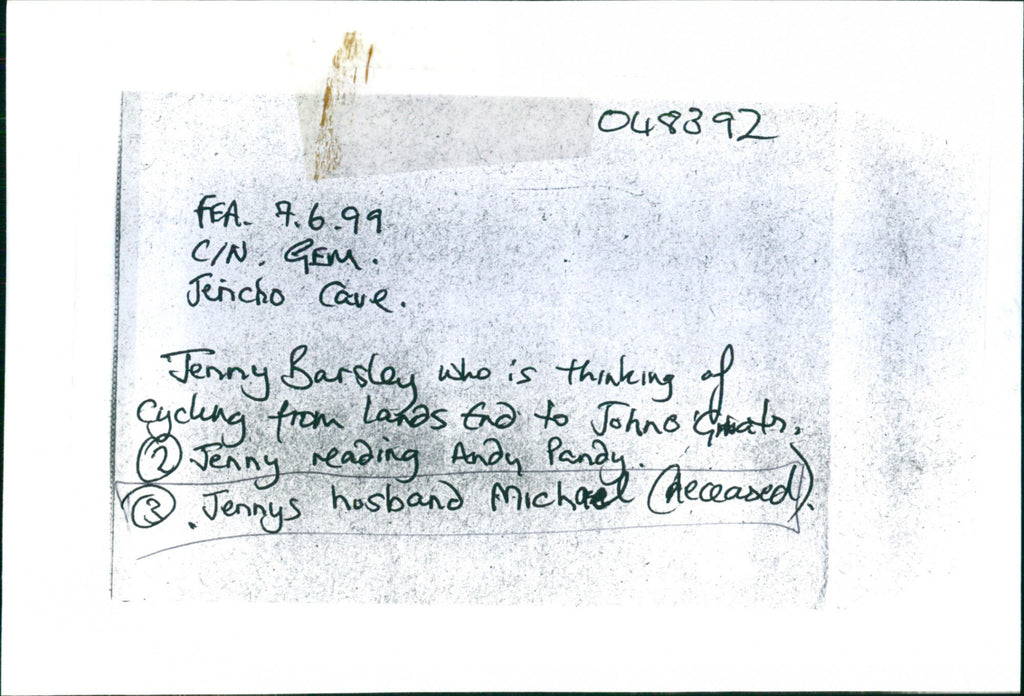 048392
FEA. 7.6.99
C/N. GEM.
Jericho Cave.
Jenny Barsley who is thinking of
Cycling from Lands End to Johno Groats.
② Jenny reading Andy Pandy.
③ . Jennys hosband Michael (deceased).